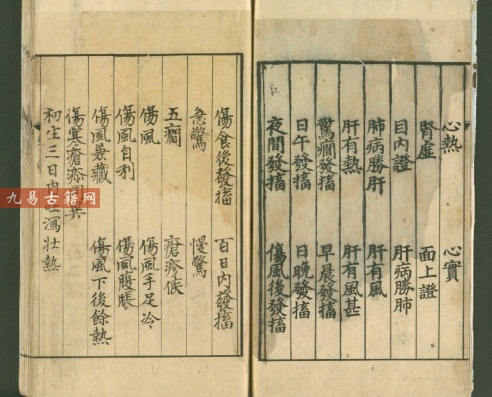 心熱 心實
腎虛 面上證
目內證 肝病勝肺
肺病勝肝 肝有風
肝有熱 肝有風甚
驚癇發搐 早晨發搐
日午發搐 日晚發搐
夜間發搐 傷風後發搐
傷食後發搐 百日內發搐
急驚 慢驚
五癇 瘡疹候
傷風 傷風手足冷
傷風自利 傷風腹脹
傷風兼藏 傷風下後餘熱
傷寒瘡疹
初生三日內 瀉壯熱
九易古籍网